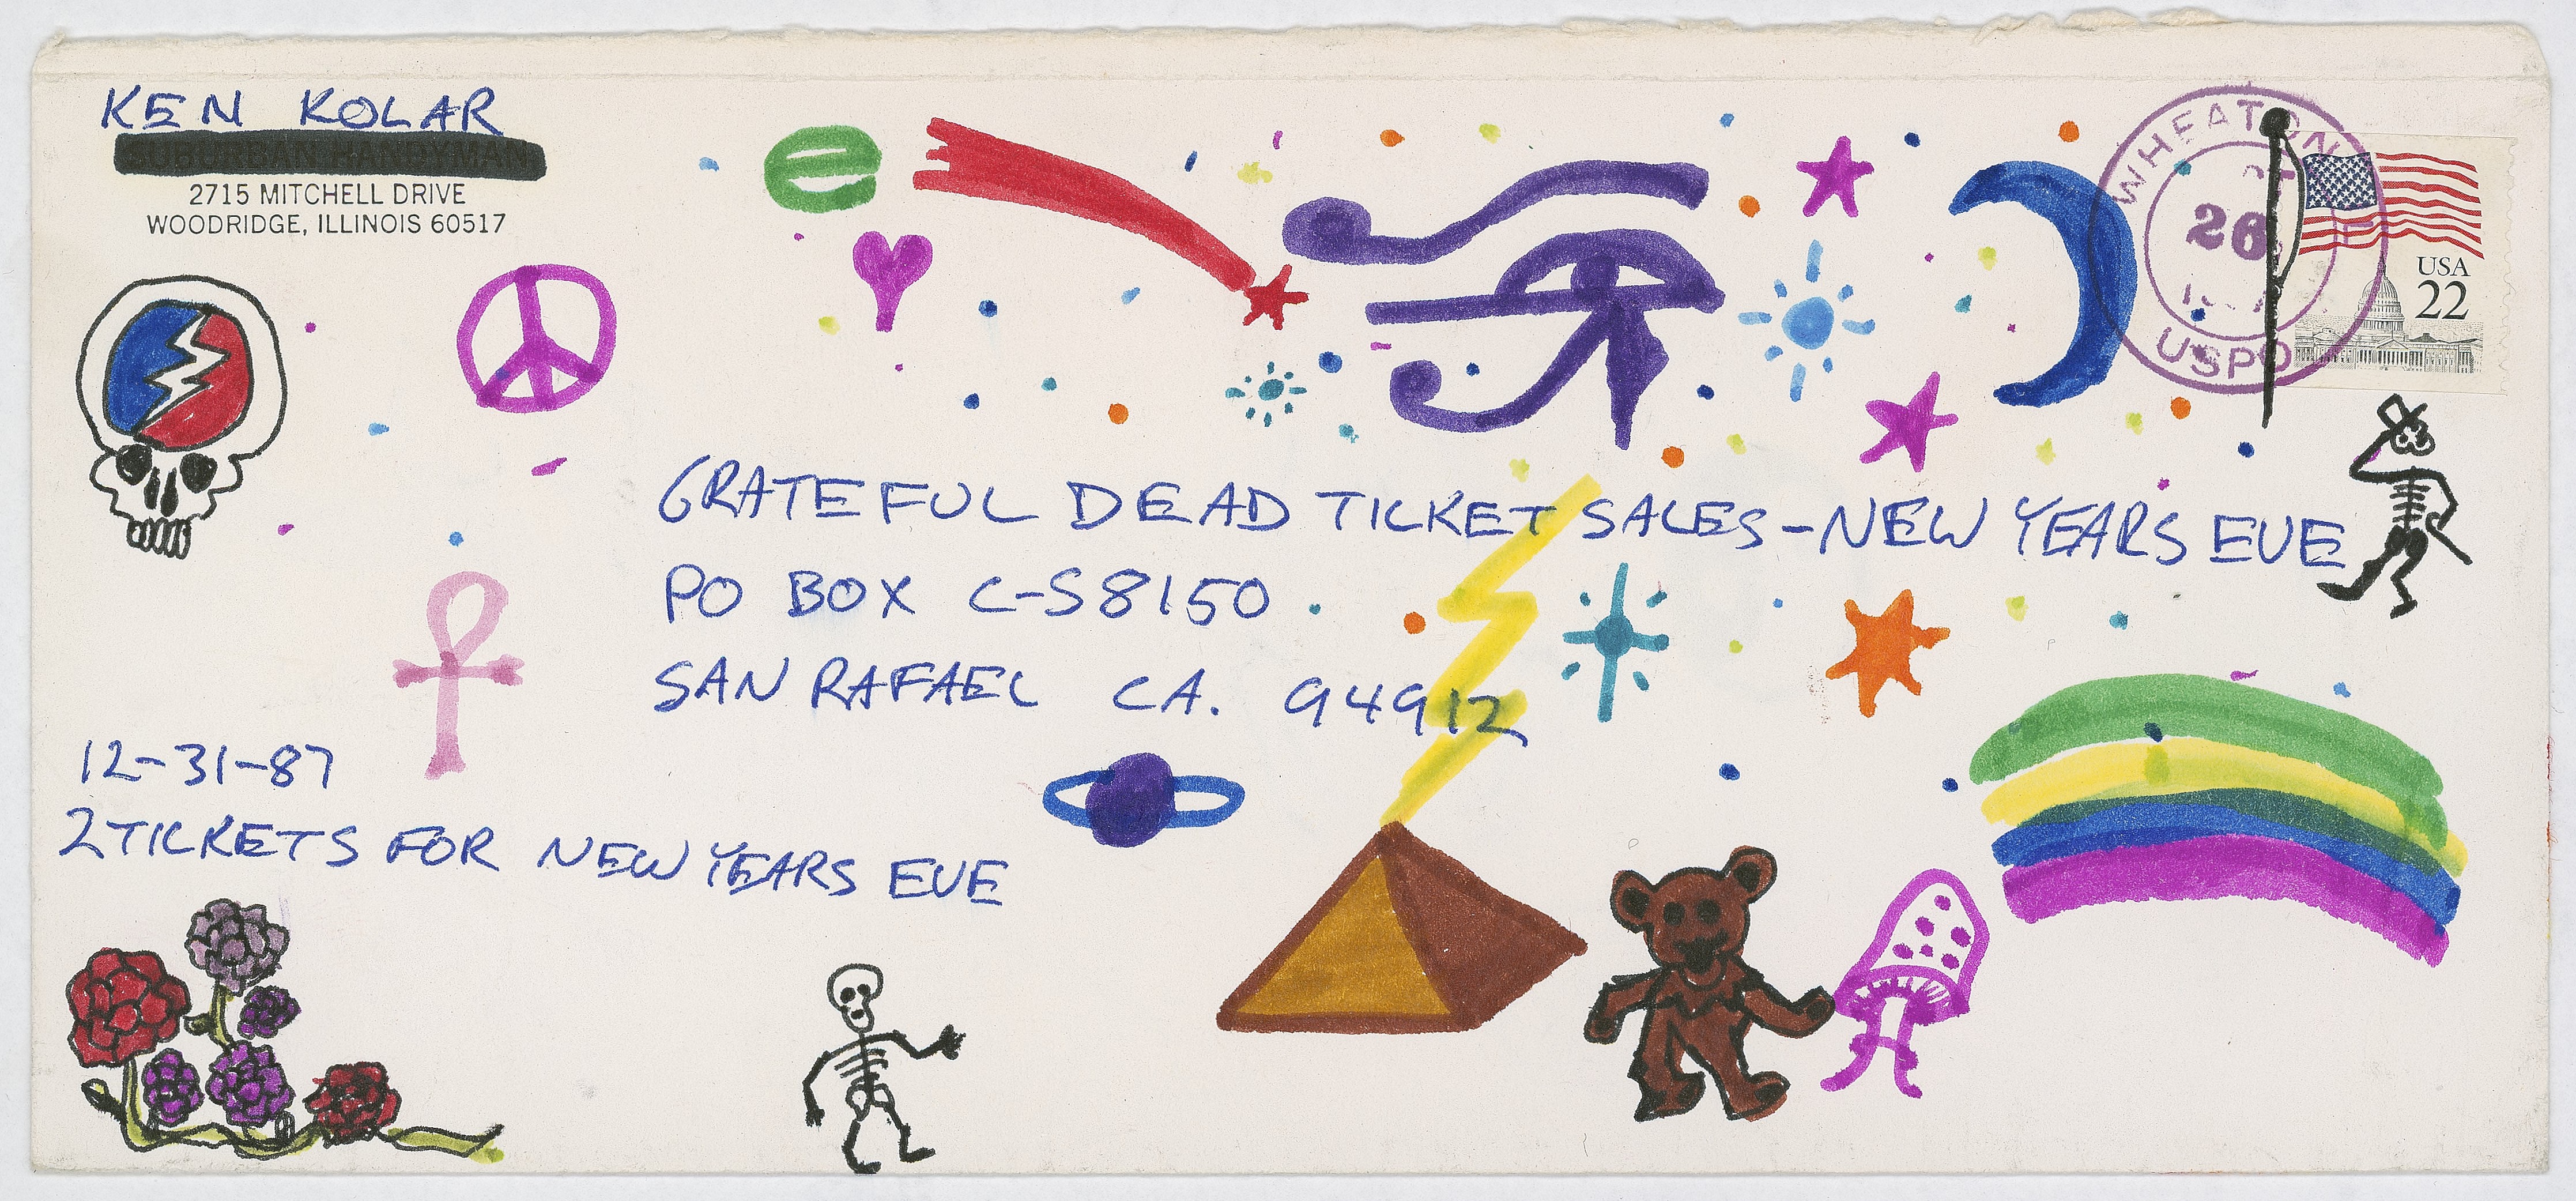 KEN KOLAR
SUBURBAN HANDYMAN
2715 MITCHELL DRIVE
WOODRIDGE, ILLINOIS 60517
e
WHEATON
26
USPO
USA
22
GRATEFUL DEAD TICKET SALES-NEW YEARS EVE
PO BOX C-S8150
SAN RAFAEL CA. 94912
12-31-87
2 TICKETS FOR NEW YEARS EVE